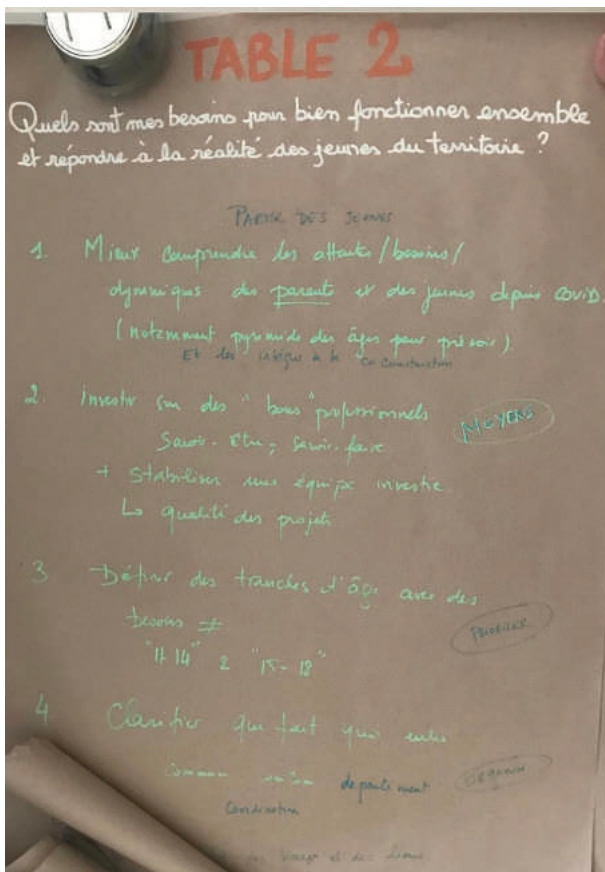 TABLE 2
Quels sont mes besoins pour bien fonctionner ensemble
et répondre à la réalité des jeunes du territoire ?
PARTIR DES JEUNES
1. Mieux comprendre les attentes/besoins/
dynamiques des parents et des jeunes depuis covid
(notamment pyramide des âges pour prévoir).
Et les intégrer à la co construction
2. investir sur des "bons" professionnels
MOYENS
Savoir-être, savoir-faire
+ Stabiliser une équipe investie
↳ qualité des projets
3 Définir des tranches d'âge avec des
besoins ≠
"11 14" 2 "15-18"
4 Clarifier qui fait quoi entre
département
Coordination
et des